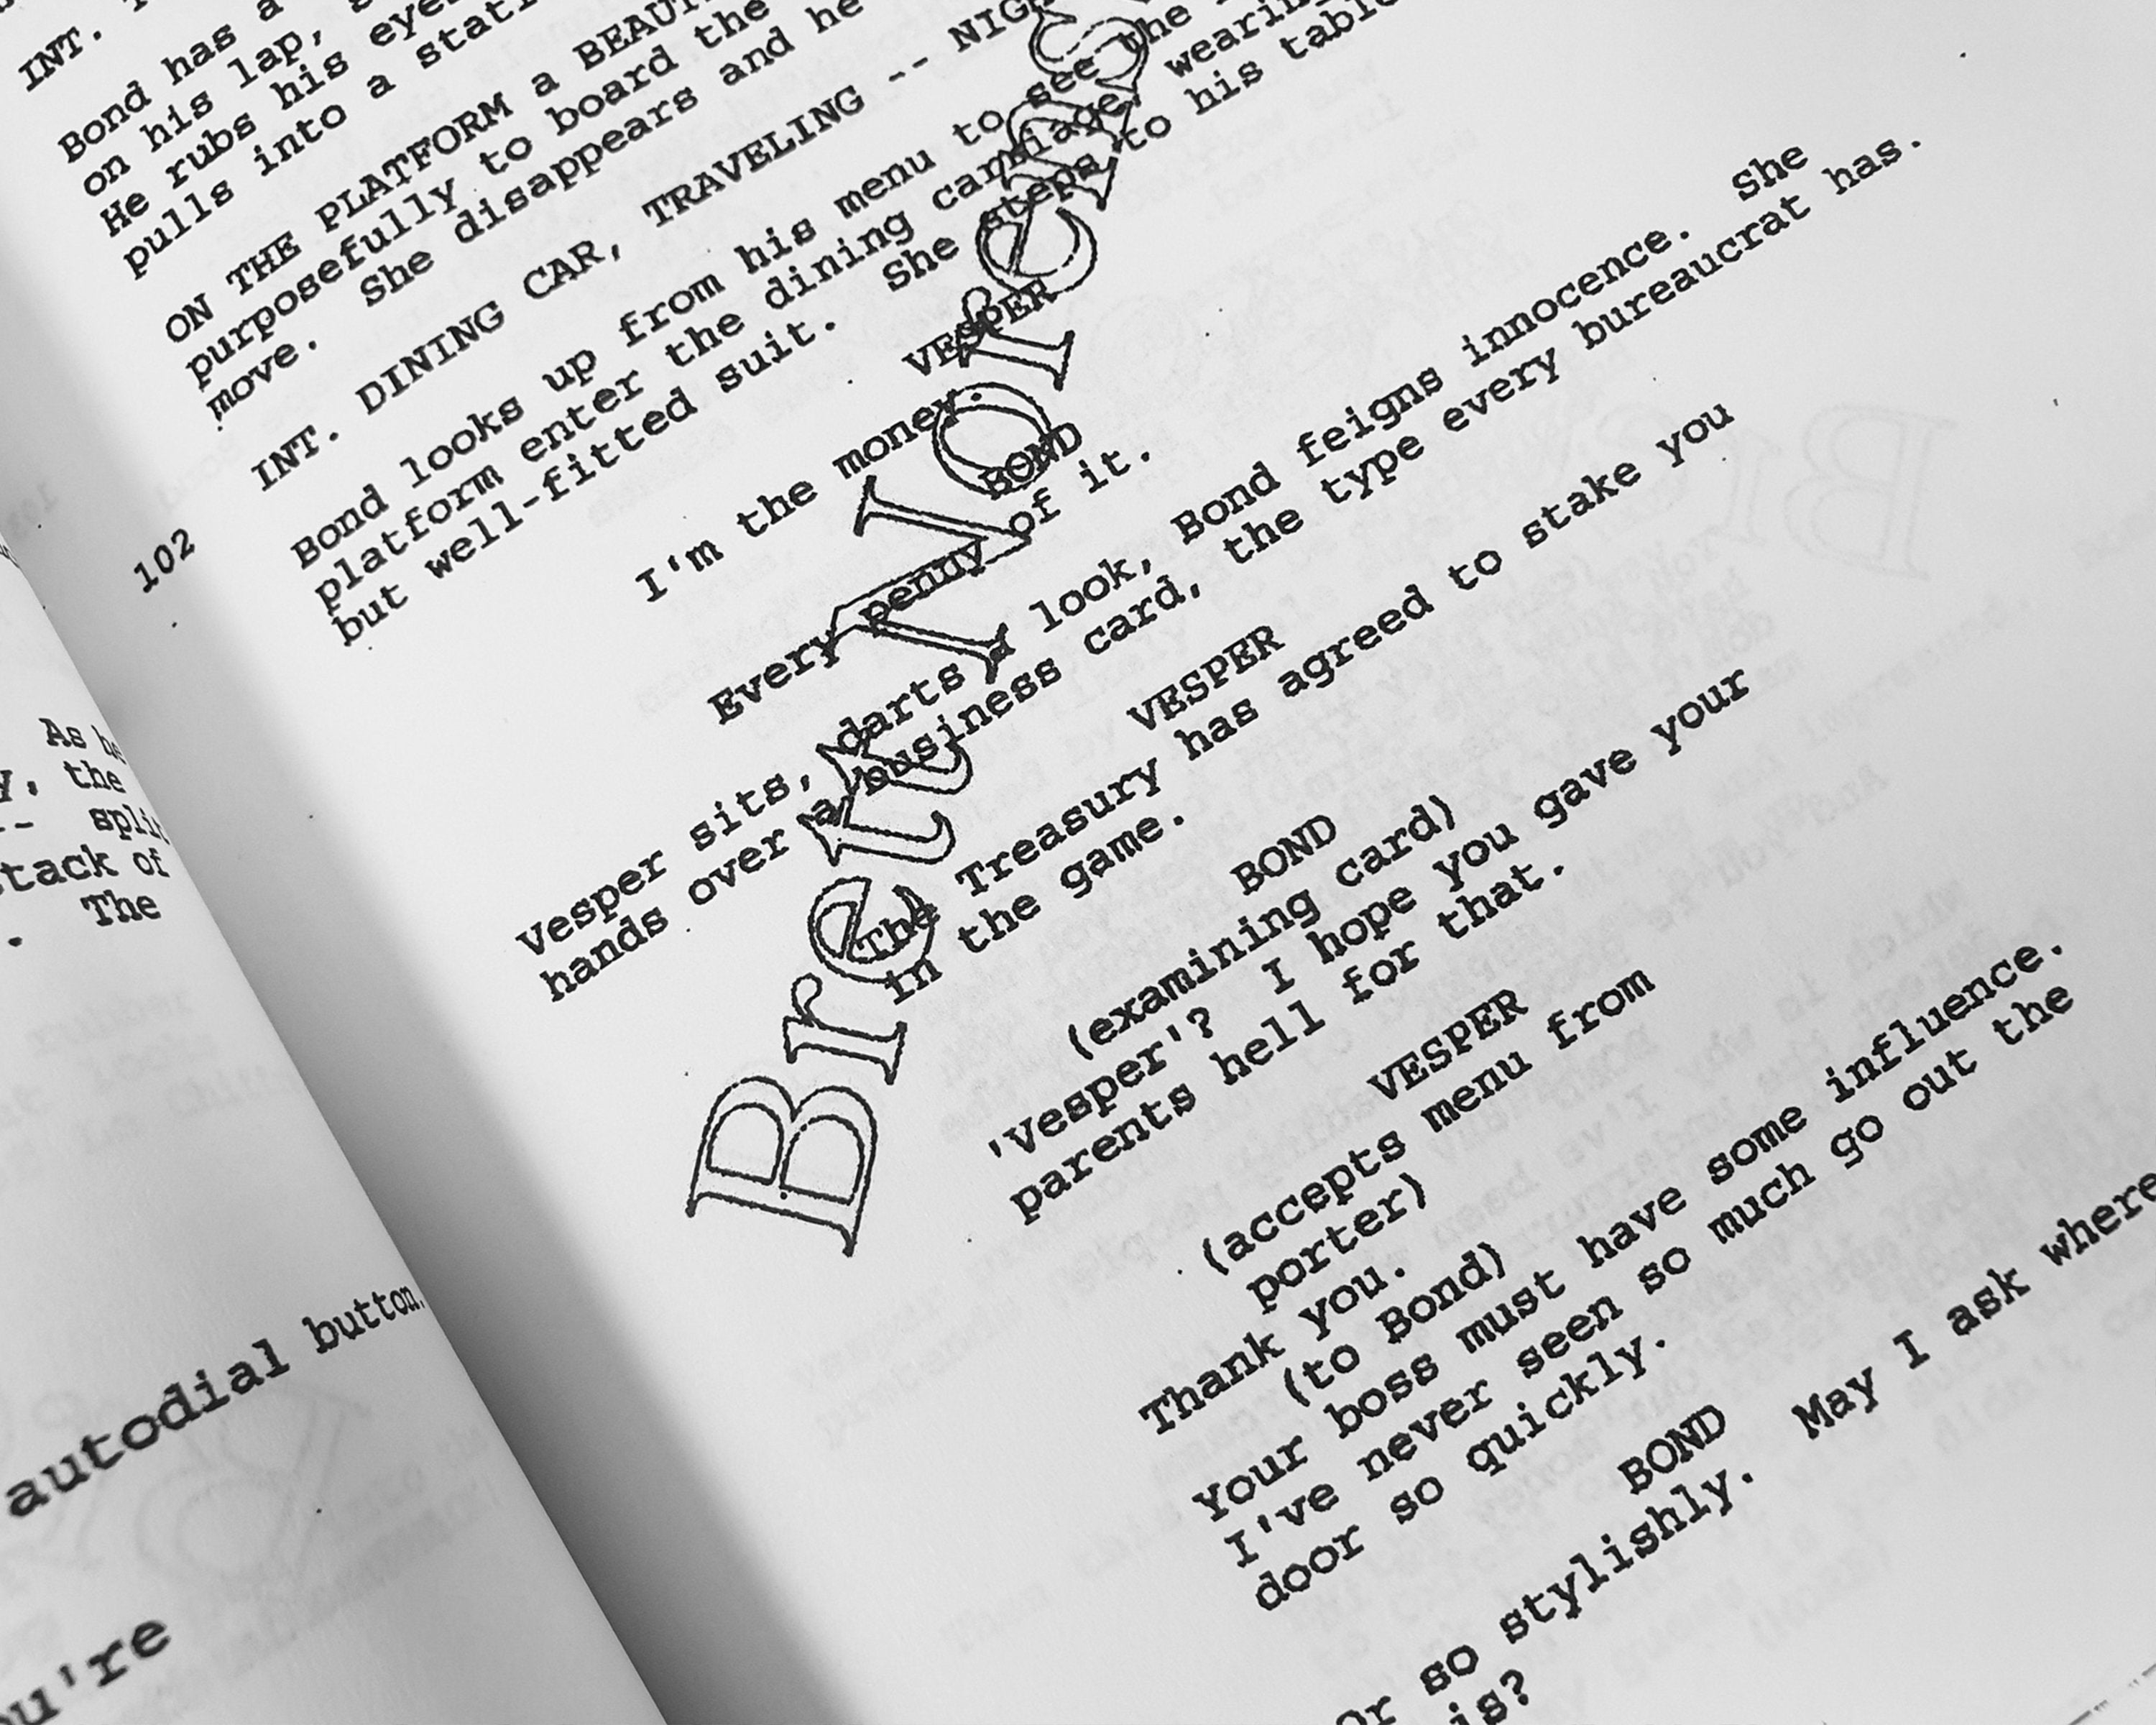 As he
y, the
-- split
stack of
. The
autodial button.
ou're
INT.
Bond has a
on his lap,
He rubs his eyes
pulls into a stati
ON THE PLATFORM a BEAU
purposefully to board the
move. She disappears and he
102
INT. DINING CAR, TRAVELING -- NIGH
Bond looks up from his menu to see the
platform enter the dining carriage, wearing
but well-fitted suit. She steps to his table
VESPER
I'm the money.
BOND
Every penny of it.
Vesper sits, darts a look, Bond feigns innocence. She
hands over a business card, the type every bureaucrat has.
VESPER
The Treasury has agreed to stake you
in the game.
BOND
(examining card)
'Vesper'? I hope you gave your
parents hell for that.
VESPER
(accepts menu from
porter)
Thank you.
(to Bond)
Your boss must have some influence.
I've never seen so much go out the
door so quickly.
BOND
Or so stylishly. May I ask where
is?
Brett Norensky